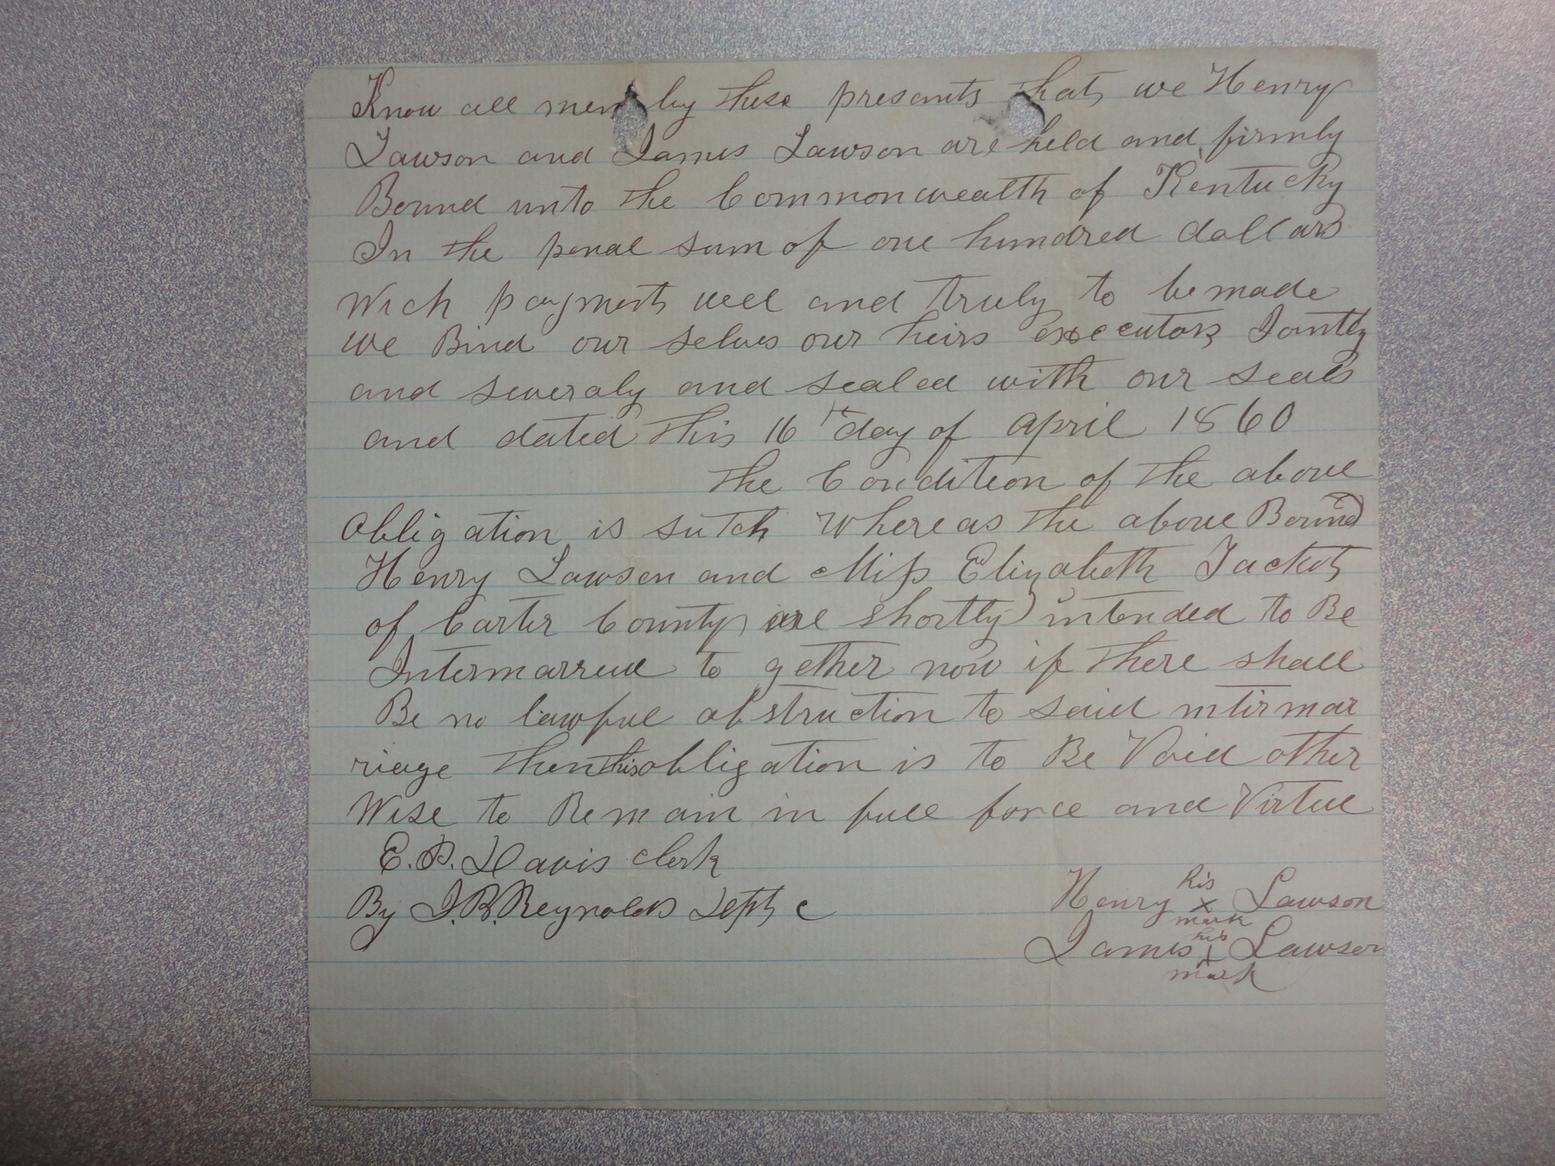 Know all men by these presants that we Henry
Lawson and James Lawson are held and firmly
Bound unto the Commonwealth of Kentucky
In the penal sum of one hundred dollars
Wich payment well and truly to be made
we Bind our selves our heirs executors Jointly
and severaly and sealed with our seals
and dated this 16th day of April 1860
the Condition of the above
Obligation is sutch Whereas the above Bound
Henry Lawson and Miss Elizabeth Jacket
of Carter County are shortly intended to Be
Intermarreed to gether now if there shall
Be no lawful obstruction to said intirmar
riage then this obligation is to Be Void other
Wise to Remain in full force and Virtue
E. D. Davis Clerk
By J. R. Reynolds Depty c
Henry his x mark Lawson
James his x mark Lawson